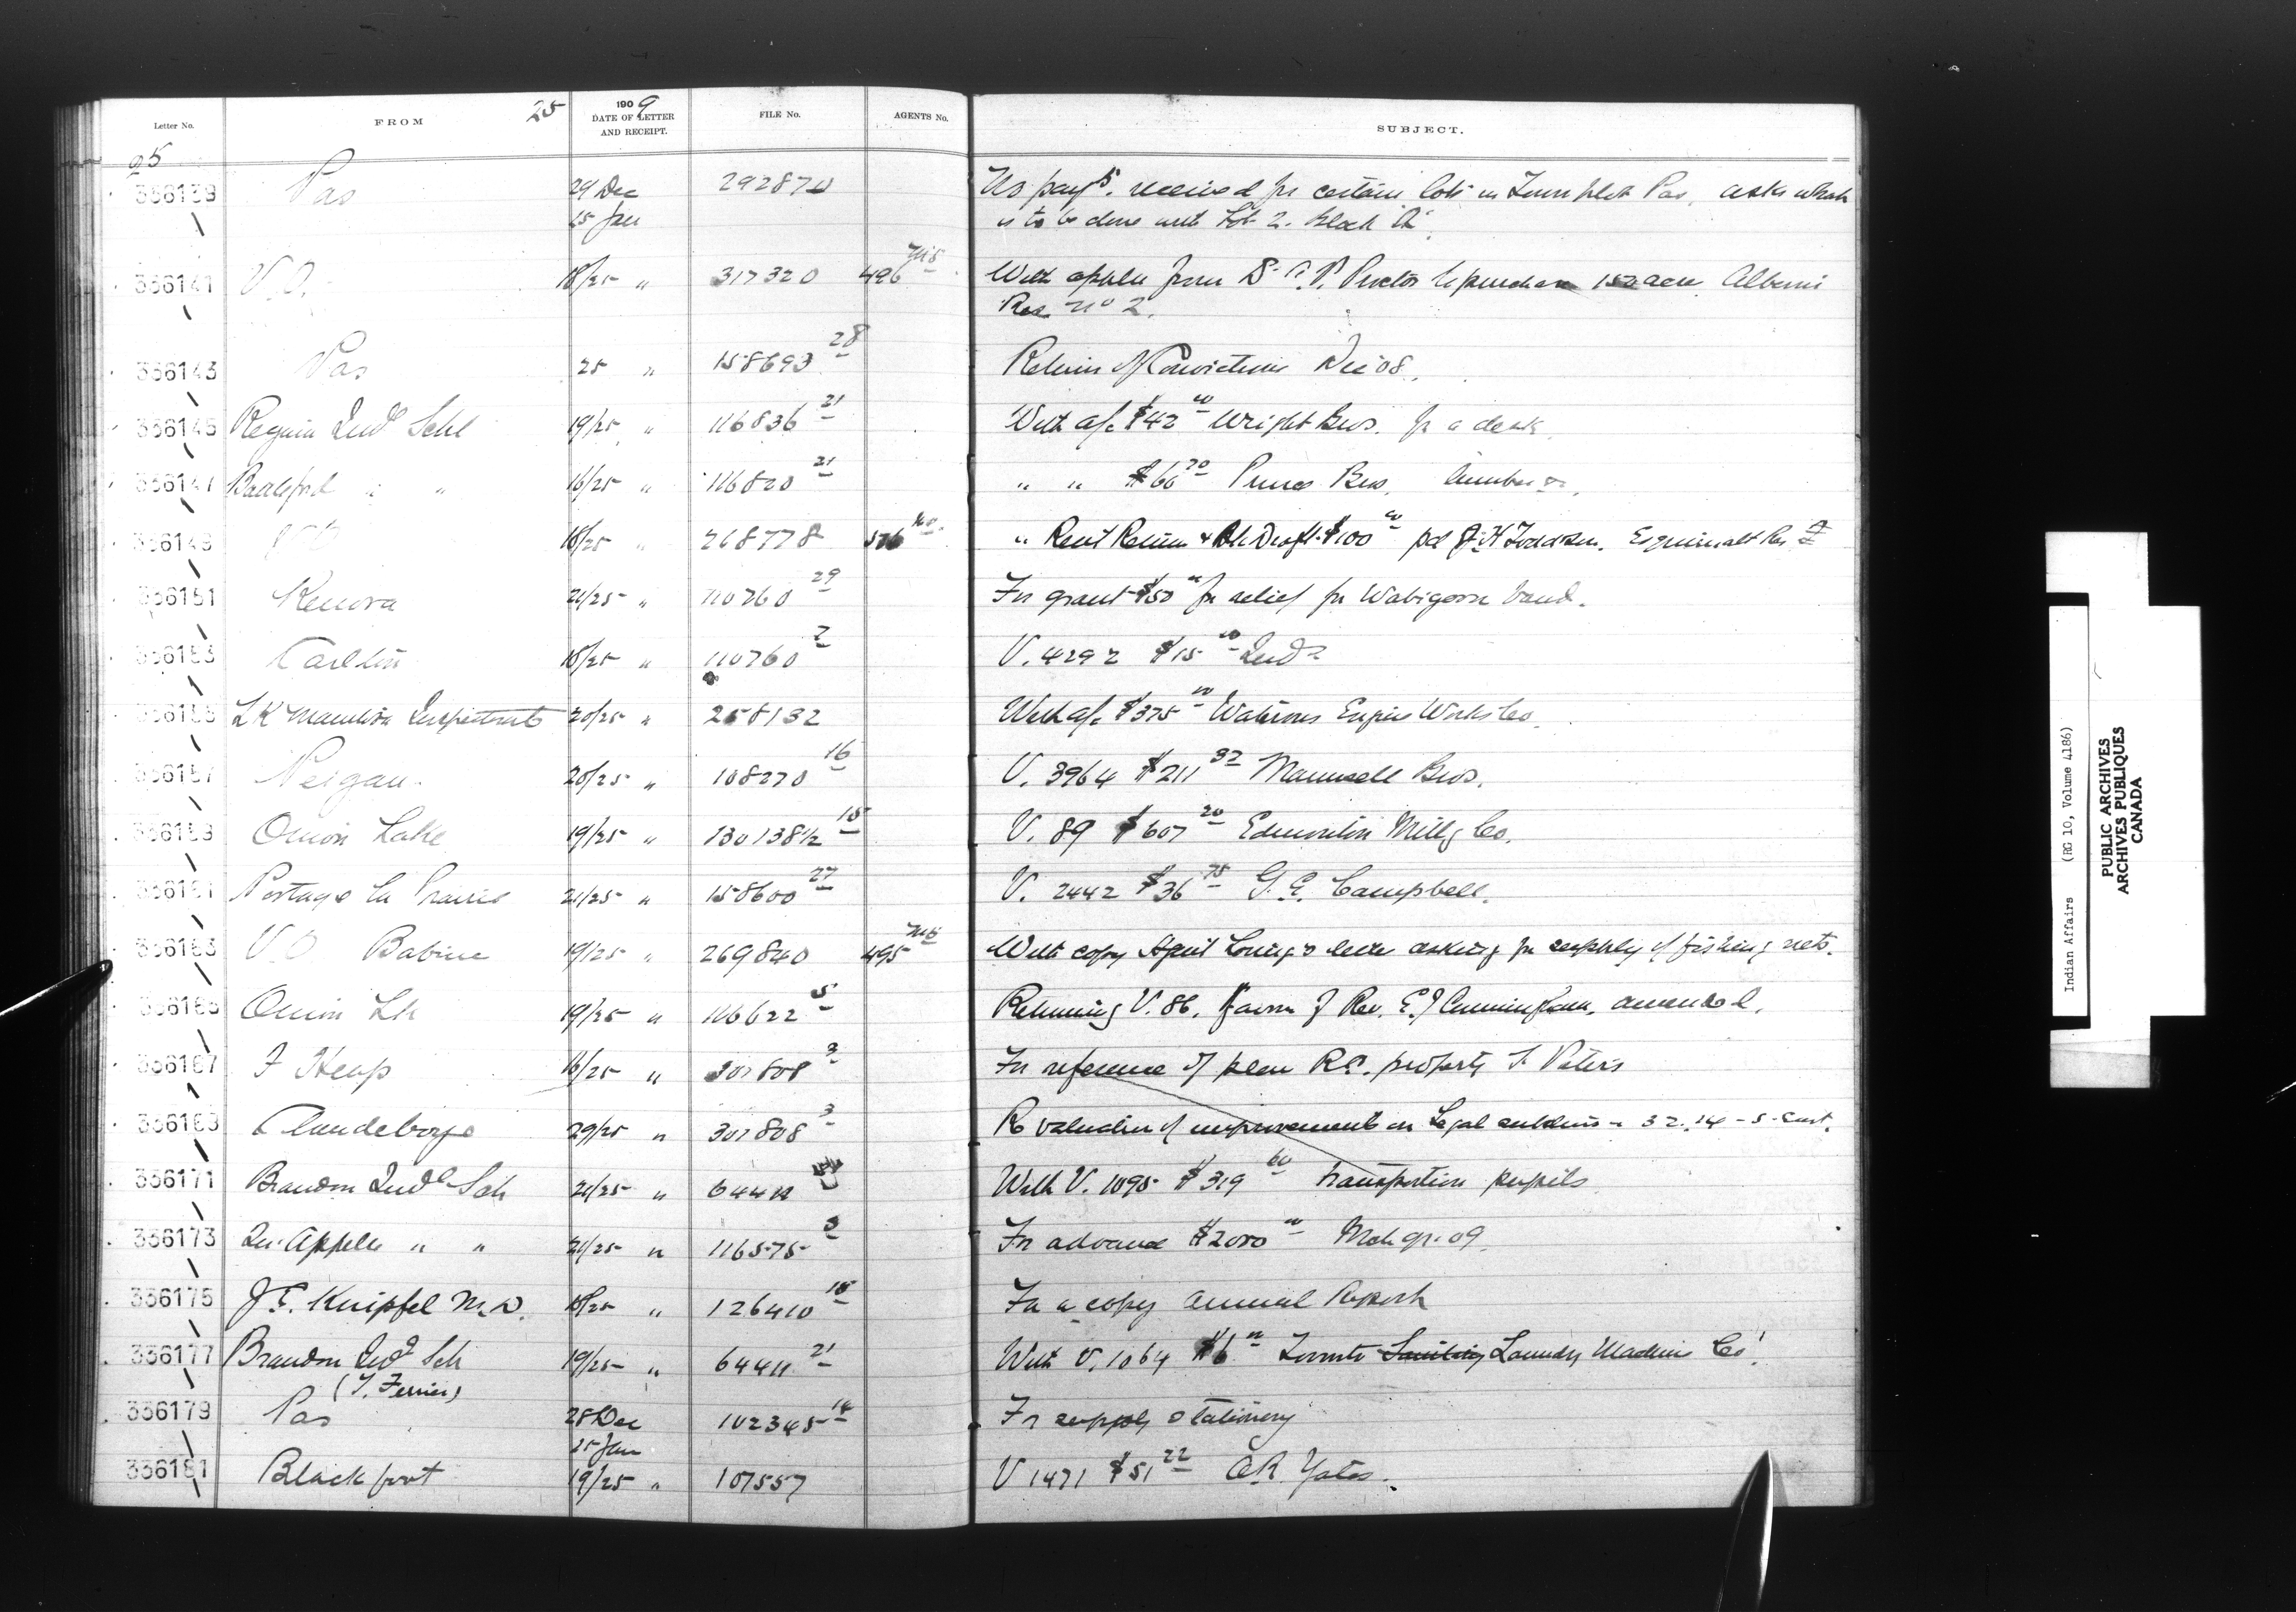 Letter No. FROM 25 1909 DATE OF LETTER AND RECEIPT. FILE No. AGENTS No. SUBJECT.
25
336139 Pas 29 Dec 292870 No payts. received for certain lots in Town plot Pas, asks what
25 Jan is to be done with Lot 2. Block A.
336141 V.O. 18/25 " 317320 496 With from A. P. Proctor to purchase acre Alberni
Res No 2.
336143 Pas 25 " 158693 28 Return of Convictions Dec 08.
336145 Regina Indl Schl 19/25 " 116836 21 With a/c $42 00 Wright Bros. for a desk
336147 Battleford " " 16/25 " 116820 21 " " $66 70 Prince Bros. lumber
336149 18/25 " 268778 " Rent Return & Draft $100 00 pd J. H. Todd & Son. Esquimalt Res
336151 Kenora 21/25 " 110760 29 For grant $50 00 for relief for Wabigoon band.
336153 Carlton 18/25 " 110760 7 V. 4292 $15 00
336155 L K Manitoba Inspectorate 20/25 " 258132 With a/c $375 00 Waterous Engine Works Co.
336157 Peigan 20/25 " 108270 16 V. 3964 $211 32 Maunsell Bros.
336159 Onion Lake 19/25 " 130138½ 15 V. 89 $607 20 Edmonton Millg Co.
336161 Portage la Prairie 21/25 " 158600 27 V. 2442 $36 75 G. E. Campbell.
336163 V.O Babine 19/25 " 269840 495 With copy Agent Loring's letter asking for supply of fishing nets.
336165 Onion Lk 19/25 " 116622 5 Returning V. 86. favor of Rev. E. J Cunningham, amended.
336167 F Heap 16/25 " 307808 3 For reference of plan R.C. property St Peters
336169 Clandeboye 29/25 " 307808 3 Re valuation of improvements on Legal subdivision 32.14-5-East.
336171 Brandon Indl Sch 21/25 " 64411 With V. 1095 $319 60 transportion pupils
336173 Qu'Appelle " " 21/25 " 116575 3 For advance $2000 00 Mch qr. 09.
336175 J. F. Knipfel M.D. 18/25 " 126410 18 For a copy annual Report
336177 Brandon Indl Sch 19/25 " 64411 21 With V. 1064 $6 00 Toronto Laundry Machine Co.
(T. Ferrier)
336179 Pas 28 Dec 102345 14 For supply stationery
25 Jan
336181 Blackfoot 19/25 " 107557 V 1471 $51 22 A.R. Yates.
Indian Affairs (RG 10, Volume 4186)
PUBLIC ARCHIVES
ARCHIVES PUBLIQUES
CANADA